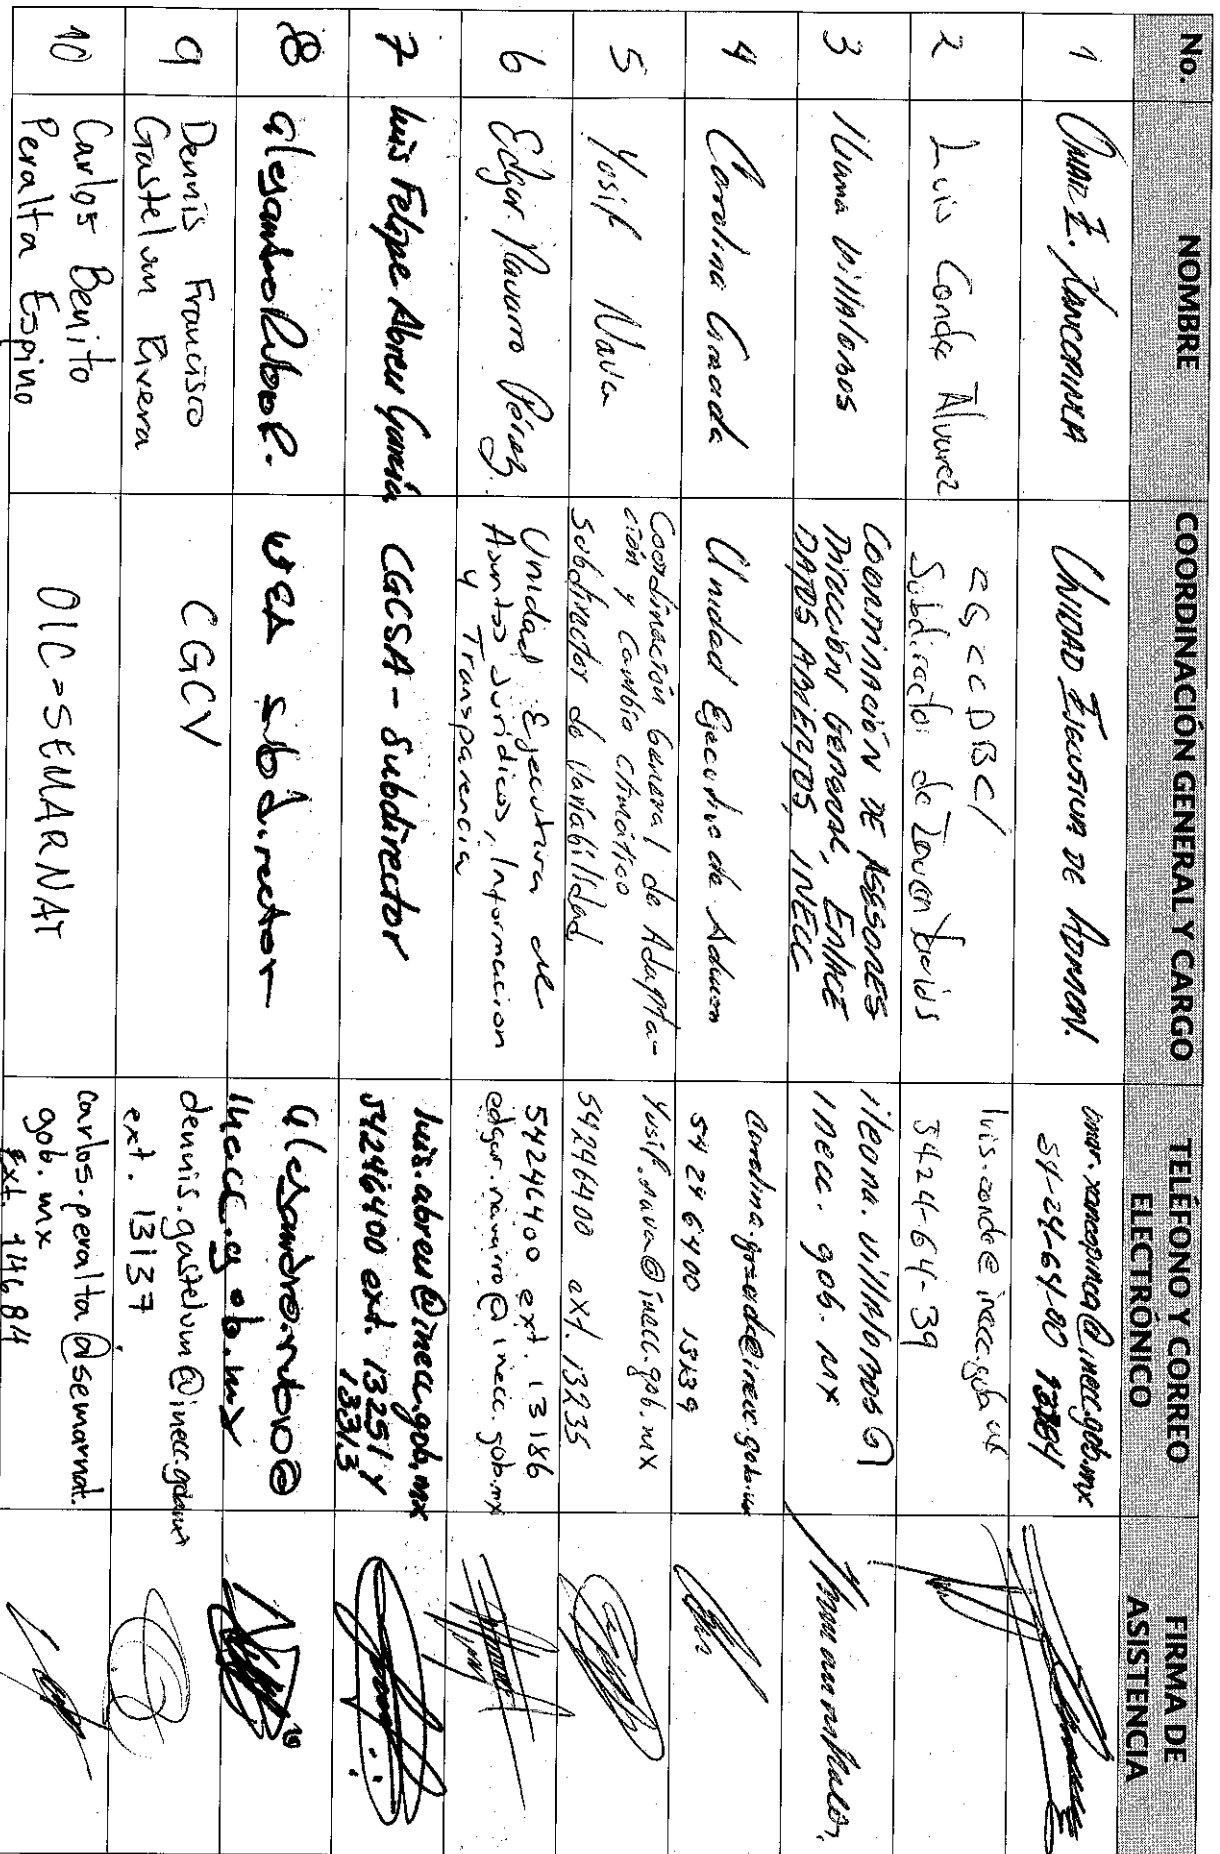 No.
NOMBRE
COORDINACIÓN GENERAL Y CARGO
TELÉFONO Y CORREO
ELECTRÓNICO
FIRMA DE
ASISTENCIA
1
Omar E.
Unidad Ejecutiva de Admon.
54-24-64-00
2
Luis Conde Alvarez
CGCCDBC/
Subdirector de
luis.conde@inecc.gob.mx
5424-64-39
3
Iliana Villalobos
Coordinación de Asesores
Dirección General, Enlace
Datos Abiertos, INECC
ileana.villalobos@
inecc.gob.mx
4
Carolina Granda
Unidad Ejecutiva de Admon
carolina.granda@inecc.gob.mx
54 24 6400 13139
5
Yusif Nava
Coordinación General de Adapta-
ción y Cambio climático
Subdirector de Variabilidad
Yusif.nava@inecc.gob.mx
54246400 ext. 13235
6
Edgar Navarro Pérez
Unidad Ejecutiva de
Asuntos Jurídicos, Informacion
y Transparencia
54246400 ext. 13186
edgar.navarro@inecc.gob.mx
7
Luis Felipe Abreu García
CGCSA - Subdirector
luis.abreu@inecc.gob.mx
54246400 ext. 13251 y
13313
8
Alejandro Rubio R.
UEA subdirector
alejandro.rubio@
inecc.gob.mx
9
Dennis Francisco
Gastelum Rivera
CGCV
dennis.gastelum@inecc.gob.mx
ext. 13137
10
Carlos Benito
Peralta Espino
OIC-SEMARNAT
carlos.peralta@semarnat.
gob.mx
Ext. 14684